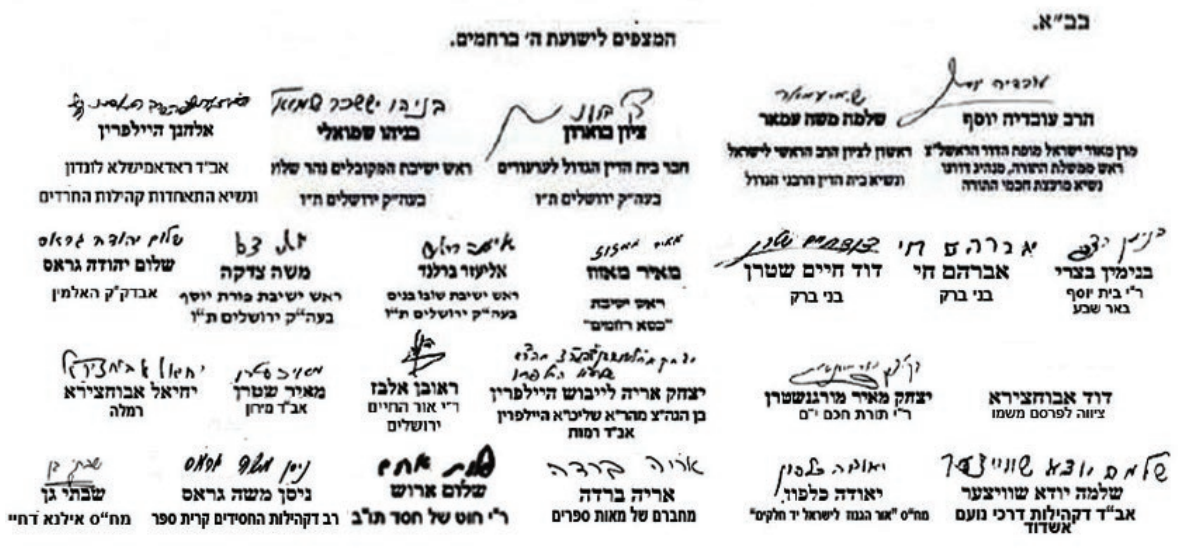 בב״א.
המצפים לישועת ה׳ ברחמים.
עובדיה יוסף
הרב עובדיה יוסף
מרן מאור ישראל מופת הדור הראשל״צ
ראש ממשלת התורה, מנהיג דורנו
נשיא מועצת חכמי התורה
ש.מ. עמאר
שלמה משה עמאר
ראשון לציון הרב הראשי לישראל
ונשיא בית הדין הרבני הגדול
ציון בוארון
חבר בית הדין הגדול לערעורים
בעה״ק ירושלים ת״ו
בניהו יששכר שמואל
בניהו שמואלי
ראש ישיבת המקובלים נהר שלום
בעה״ק ירושלים ת״ו
אלחנן היילפרין
אב״ד ראדאמישלא לונדון
ונשיא התאחדות קהילות החרדים
בנימין בצרי
ר״י בית יוסף
באר שבע
אברהם חי
אברהם חי
בני ברק
דוד חיים שטרן
דוד חיים שטרן
בני ברק
מאיר מאזוז
מאיר מאזוז
ראש ישיבת
״כסא רחמים״
אליעזר ברלנד
ראש ישיבת שובו בנים
בעה״ק ירושלים ת״ו
משה צדקה
ראש ישיבת פורת יוסף
בעה״ק ירושלים ת״ו
שלום יהודה גראס
שלום יהודה גראס
אבדק״ק האלמין
דוד אבוחצירא
ציווה לפרסם משמו
יצחק מאיר מורגנשטרן
ר״י תורת חכם י״ם
יצחק אריה לייבוש היילפרין
בן הגה״צ מהר״א שליט״א היילפרין
אב״ד רמות
ראובן אלבז
ר״י אור החיים
ירושלים
מאיר שטרן
מאיר שטרן
אב״ד מירון
יחיאל אבוחצירא
יחיאל אבוחצירא
רמלה
שלמה יודא שווייצער
שלמה יודא שוויצער
אב״ד דקהילות דרכי נועם
אשדוד
יאודה כלפון
יאודה כלפון
מח״ס ״אור הגנוז לישראל יד חלקים״
אריה ברדה
אריה ברדה
מחברם של מאות ספרים
שלום ארוש
שלום ארוש
ר״י חוט של חסד תו״ב
ניסן משה גראס
ניסן משה גראס
רב דקהילות החסידים קרית ספר
שבתי גן
שבתי גן
מח״ס אילנא דחיי